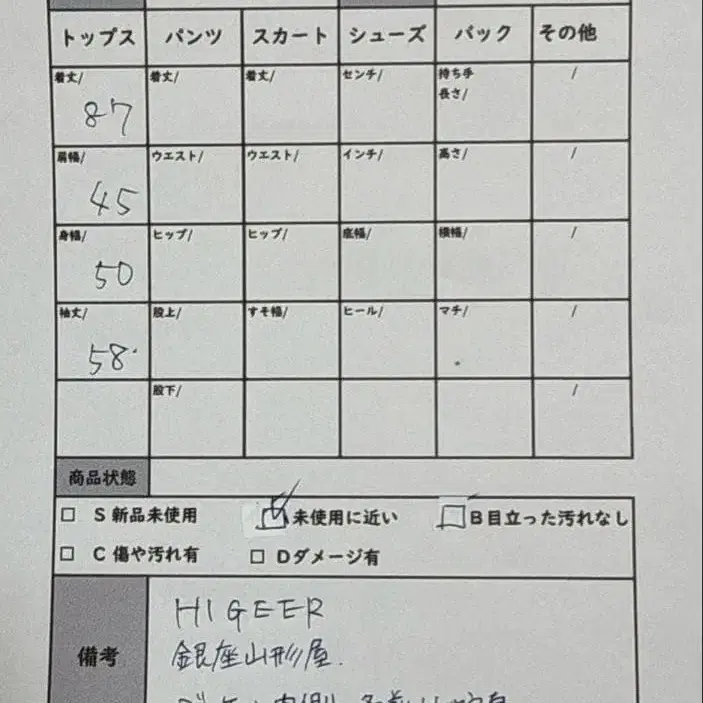 トップス パンツ スカート シューズ バック その他
着丈/ 87 着丈/ 着丈/ センチ/ 持ち手 /
長さ/
肩幅/ 45 ウエスト/ ウエスト/ インチ/ 高さ/ /
身幅/ 50 ヒップ/ ヒップ/ 底幅/ 横幅/ /
袖丈/ 58 股上/ すそ幅/ ヒール/ マチ/ /
股下/ /
商品状態
□ S 新品未使用 未使用に近い □ B目立った汚れなし
□ C 傷や汚れ有 □ Dダメージ有
備考
HIGEER
銀座山形屋.